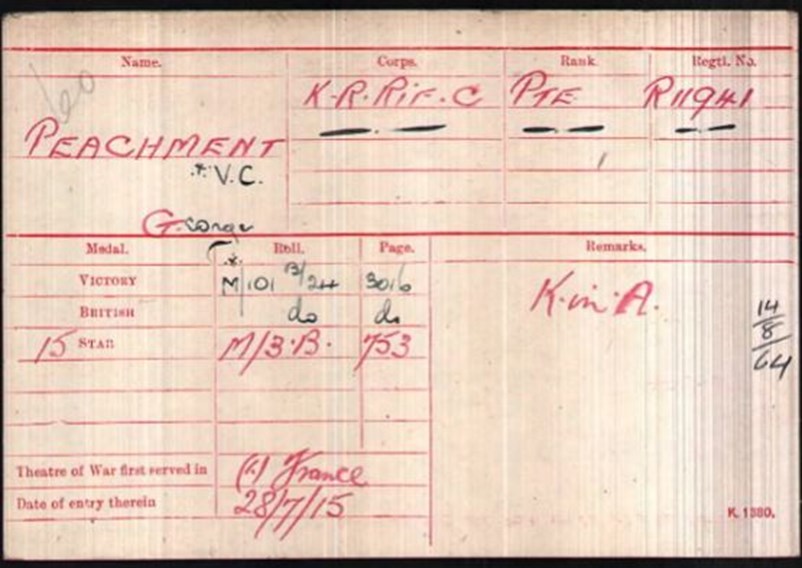 Name. Corps. Rank. Regtl. No.
60
K.R.Rif.C PTE R11941
PEACHMENT
* V.C.
George
Medal. Roll. Page. Remarks.
*
VICTORY M/101 B/24 3016
K. in. A.
BRITISH do do
14/8/64
15 STAR M/3.B. 753
Theatre of War first served in (1) France
Date of entry therein 28/7/15
K. 1380.